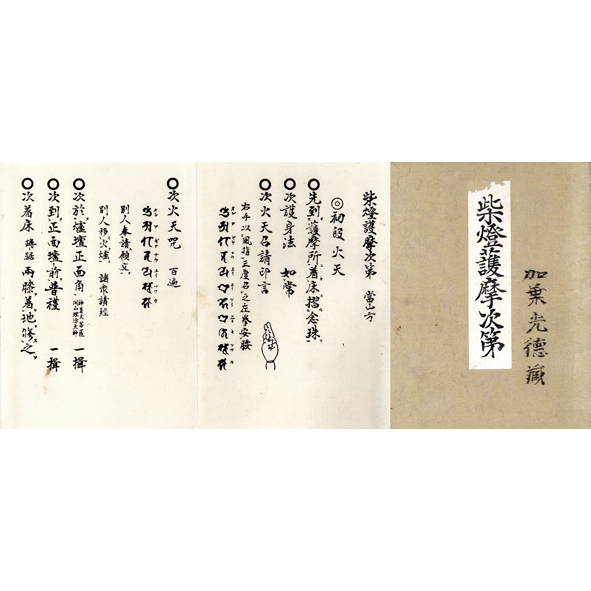 加葉光徳蔵
柴燈護摩次第
柴燈護摩次第 當山方
◎初段 火天
○先到護摩所着床摺念珠
○次護身法 如常
○次火天召請印言
右手以風指三度召之左拳安腰
○次火天呪 百遍
別人奉請願文
別人移火爐 諸衆請経
○次於爐壇正面角 一揖
○次到正面壇前普禮 一揖
○次着床 蹲踞 両膝着地修之